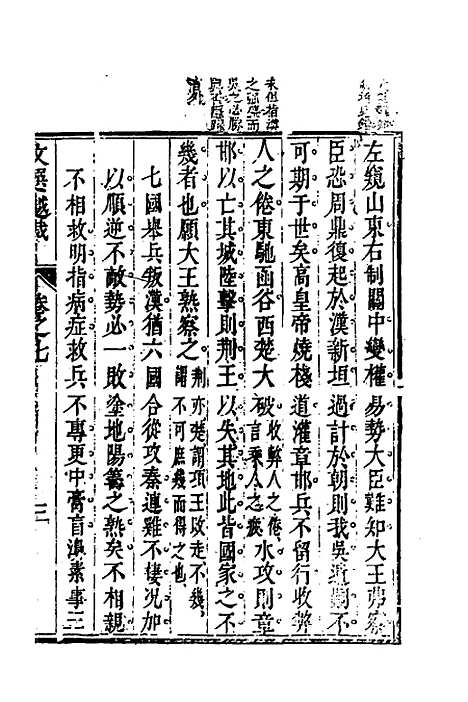 左規山東右制關中變權易勢大臣難知大王弗察
臣恐周鼎復起於漢新垣過計於朝則我吳遺嗣不
可期于世矣高皇帝燒棧道灌章邯兵不留行收弊
人之倦東馳函谷西楚大破收弊人之倦言乘人之疲水攻則章
邯以亡其城陸擊則荆王以失其地此皆國家之不
幾者也願大王熟察之荆亦楚謂項王敗走不幾謂不可庶幾而得之也
七國舉兵叛漢猶六國合從攻秦連雞不棲況加
以順逆不敵勢必一敗塗地陽籌之熟矣不相親
不相救明指病症救兵不專更中膏肓
文選越裁
卷之七